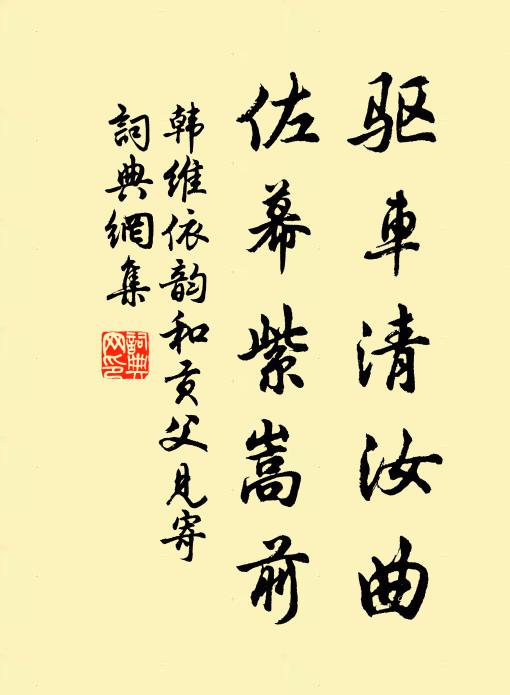 驱車清汝曲
佐幕紫嵩前
韩维依韵和贡父见寄
詞典網集
詞典網印